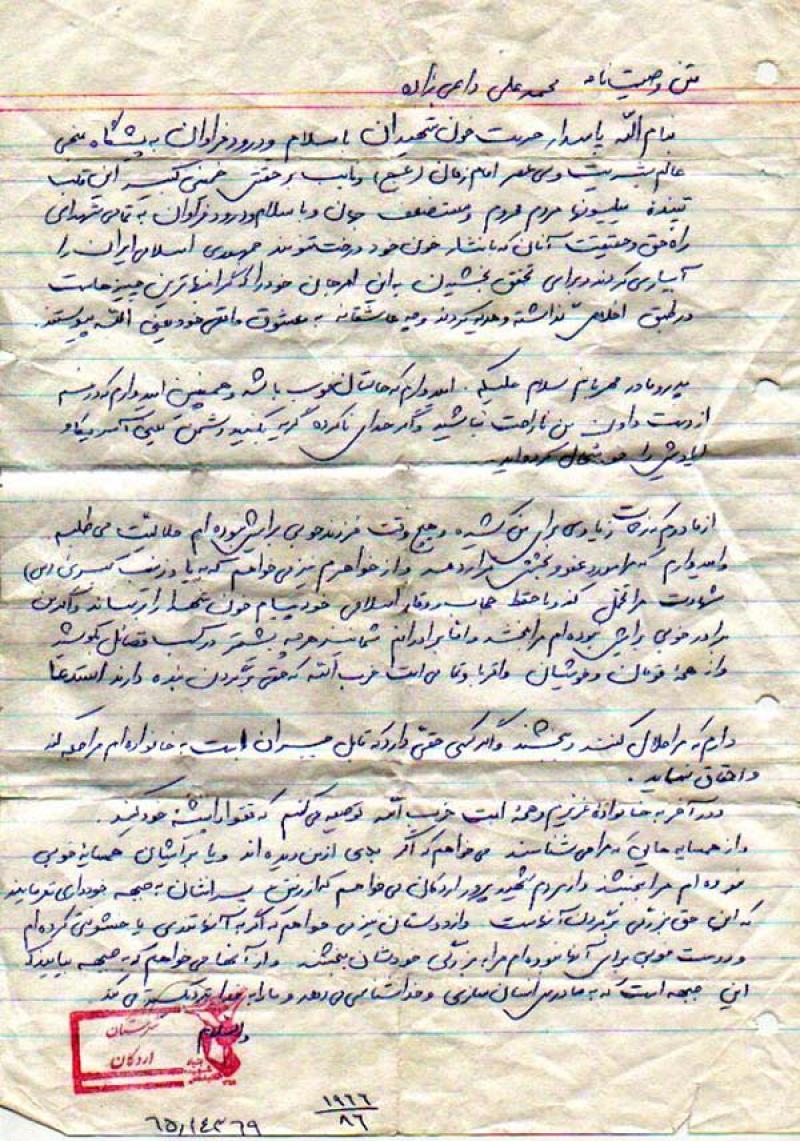 متن وصیت نامه محمد علی داعی زاده
بنام الله پاسدار حرمت خون شهیدان با سلام و درود فراوان به پیشگاه منجی
عالم بشریت ولی عصر امام زمان (عج) و نایب بر حقش خمینی کبیر این قلب
تپنده میلیونها مردم محروم و مستضعف جهان و با سلام و درود فراوان به تمامی شهدای
راه حق و حقیقت آنان که با نثار خون خود درخت تنومند جمهوری اسلامی ایران را
آبیاری کردند و برای تحقق بخشیدن به این امر جان خود را که گرانبهاترین چیزهاست
در طبق اخلاص گذاشته و هدیه کردند و چه عاشقانه به معشوق واقعی خود یعنی الله پیوستند.
پدر و مادر مهربانم سلام علیکم. امیدوارم که حالتان خوب باشد و همچنین امیدوارم که در
از دست دادن من ناراحت نباشید و اگر خدای ناکرده گریه بکنید دشمن یعنی آمریکا و
ایادیش را خوشحال کرده‌اید.
از مادرم که زحمات زیادی برای من کشیده و هیچ وقت فرزند خوبی برایش نبوده ام حلالیت می طلبم
و امیدوارم که مرا مورد عفو و بخشش قرار دهد و از خواهرم نیز می خواهم که به یاد زینب کبری (س)
شهادت مرا تحمل کند و با حفظ حجاب و وقار اسلامی خود پیام خون شهدا را برساند و اگر من
برادر خوبی برایش نبوده ام مرا ببخشد و اما برادرانم شما نیز هر چه بیشتر در کسب فضائل بکوشید
و از همهٔ قومان و خویشان و اقربا و تمامی امت حزب الله که حقی بر گردن بنده دارند استدعا
دارم که مرا حلال کنند و ببخشند و اگر کسی حقی دارد که قابل جبران است به خانواده ام مراجعه کند
و احقاق نماید.
در آخر به خانوادهٔ عزیزم و همهٔ امت حزب الله توصیه می کنم که تقوا را پیشهٔ خود کنید.
و از همسایه هایی که مرا می شناسند می خواهم که اگر بدی از من دیده اند و یا برایشان همسایه خوبی
نبوده ام مرا ببخشند و از مردم شهید پرور اردکان می خواهم که از رفتن پسرانشان به جبهه خودداری نفرمایند
که این حق بزرگی بر گردن آنهاست و از دوستان نیز می خواهم که اگر به آنها تندی یا خشونتی کرده ام
و دوست خوبی برای آنها نبوده ام مرا به بزرگی خودشان ببخشند و از آنها می خواهم که به جبهه بیایند که
این جبهه است که به ما درس انسان سازی و خداشناسی می دهد و ما را به خدا نزدیکتر می کند.
والسلام
اردکان
۱۹۶۶
۸۶
۶۵/۱۴۳۶۹